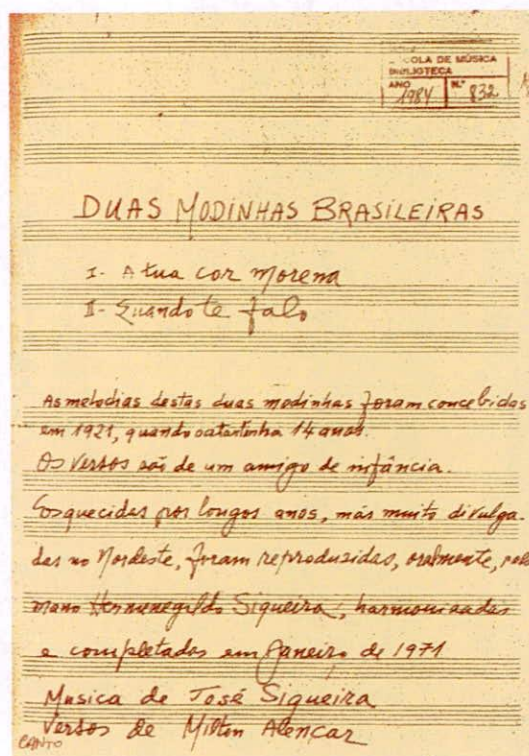 COLA DE MÚSICA
BIBLIOTECA
ANO N.º
1984 832
DUAS MODINHAS BRASILEIRAS
I- A tua cor morena
II- Quando te falo
As melodias destas duas modinhas foram concebidas
em 1921, quando tinha 14 anos.
Os versos são de um amigo de infância.
Esquecidas por longos anos, mas muito divulga-
das no Nordeste, foram reproduzidas, oralmente, pelo
mano Hermenegildo Siqueira, harmonizadas
e completadas em Janeiro de 1971
Musica de José Siqueira
Versos de Milton Alencar
CANTO